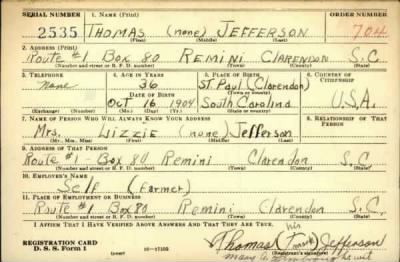 SERIAL NUMBER 1. NAME (Print) ORDER NUMBER
2535 THOMAS (none) JEFFERSON 704
(First) (Middle) (Last)
2. ADDRESS (Print)
Route #1 Box 80 Remini Clarendon S.C.
(Number and street or R. F. D. number) (Town) (County) (State)
3. TELEPHONE 4. AGE IN YEARS 5. PLACE OF BIRTH 6. COUNTRY OF CITIZENSHIP
None 36 St. Paul (Clarendon)
DATE OF BIRTH (Town or county)
Oct 16 1904 South Carolina U.S.A.
(Exchange) (Number) (Mo.) (Day) (Yr.) (State or country)
7. NAME OF PERSON WHO WILL ALWAYS KNOW YOUR ADDRESS 8. RELATIONSHIP OF THAT PERSON
Mrs. Lizzie (none) Jefferson
(Mr., Mrs., Miss) (First) (Middle) (Last)
9. ADDRESS OF THAT PERSON
Route #1 - Box 80 Remini Clarendon S.C.
(Number and street or R. F. D. number) (Town) (County) (State)
10. EMPLOYER'S NAME
Self (farmer)
11. PLACE OF EMPLOYMENT OR BUSINESS
Route #1 Box 80 Remini Clarendon S.C.
(Number and street or R. F. D. number) (Town) (County) (State)
I AFFIRM THAT I HAVE VERIFIED ABOVE ANSWERS AND THAT THEY ARE TRUE.
his
Thomas (mark) Jefferson
REGISTRATION CARD
D. S. S. Form 1 (over) (Registrant's signature)
Mary wit